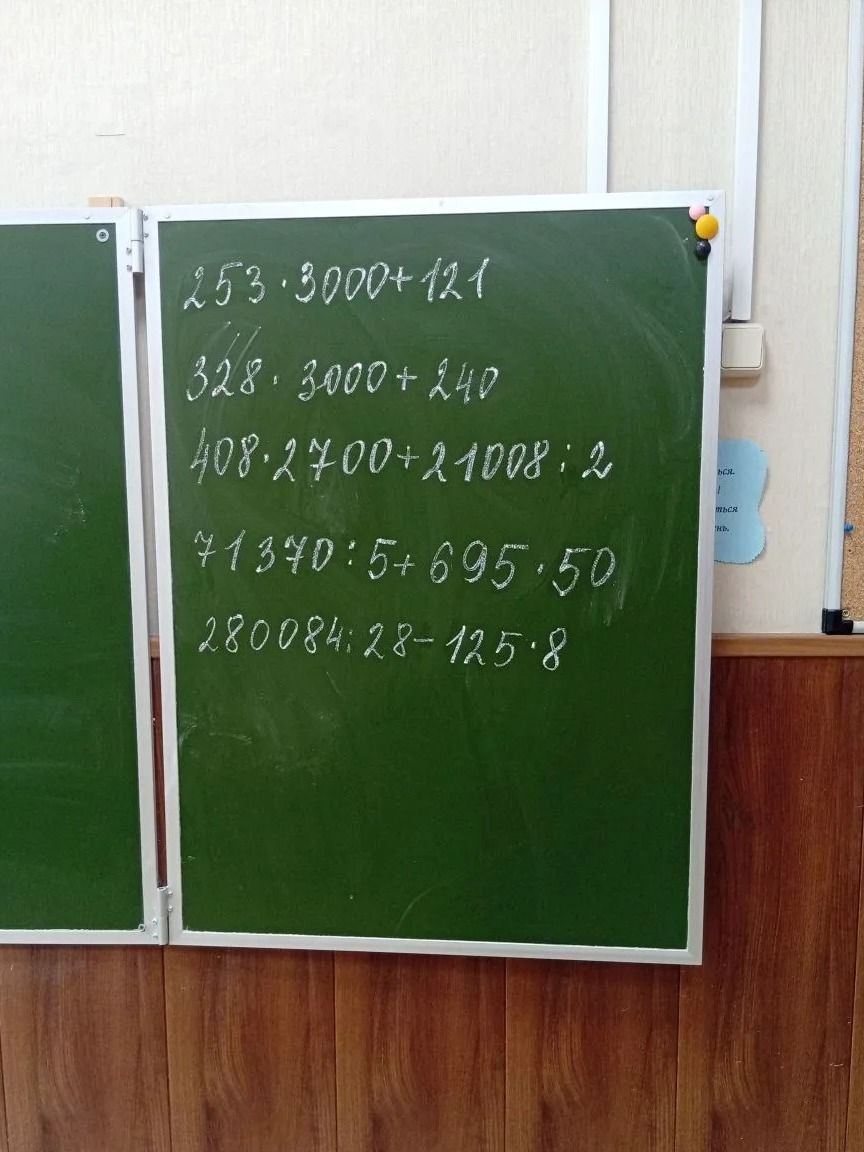 253·3000+121
328·3000+240
408·2700+21008:2
71370:5+695·50
280084:28-125·8